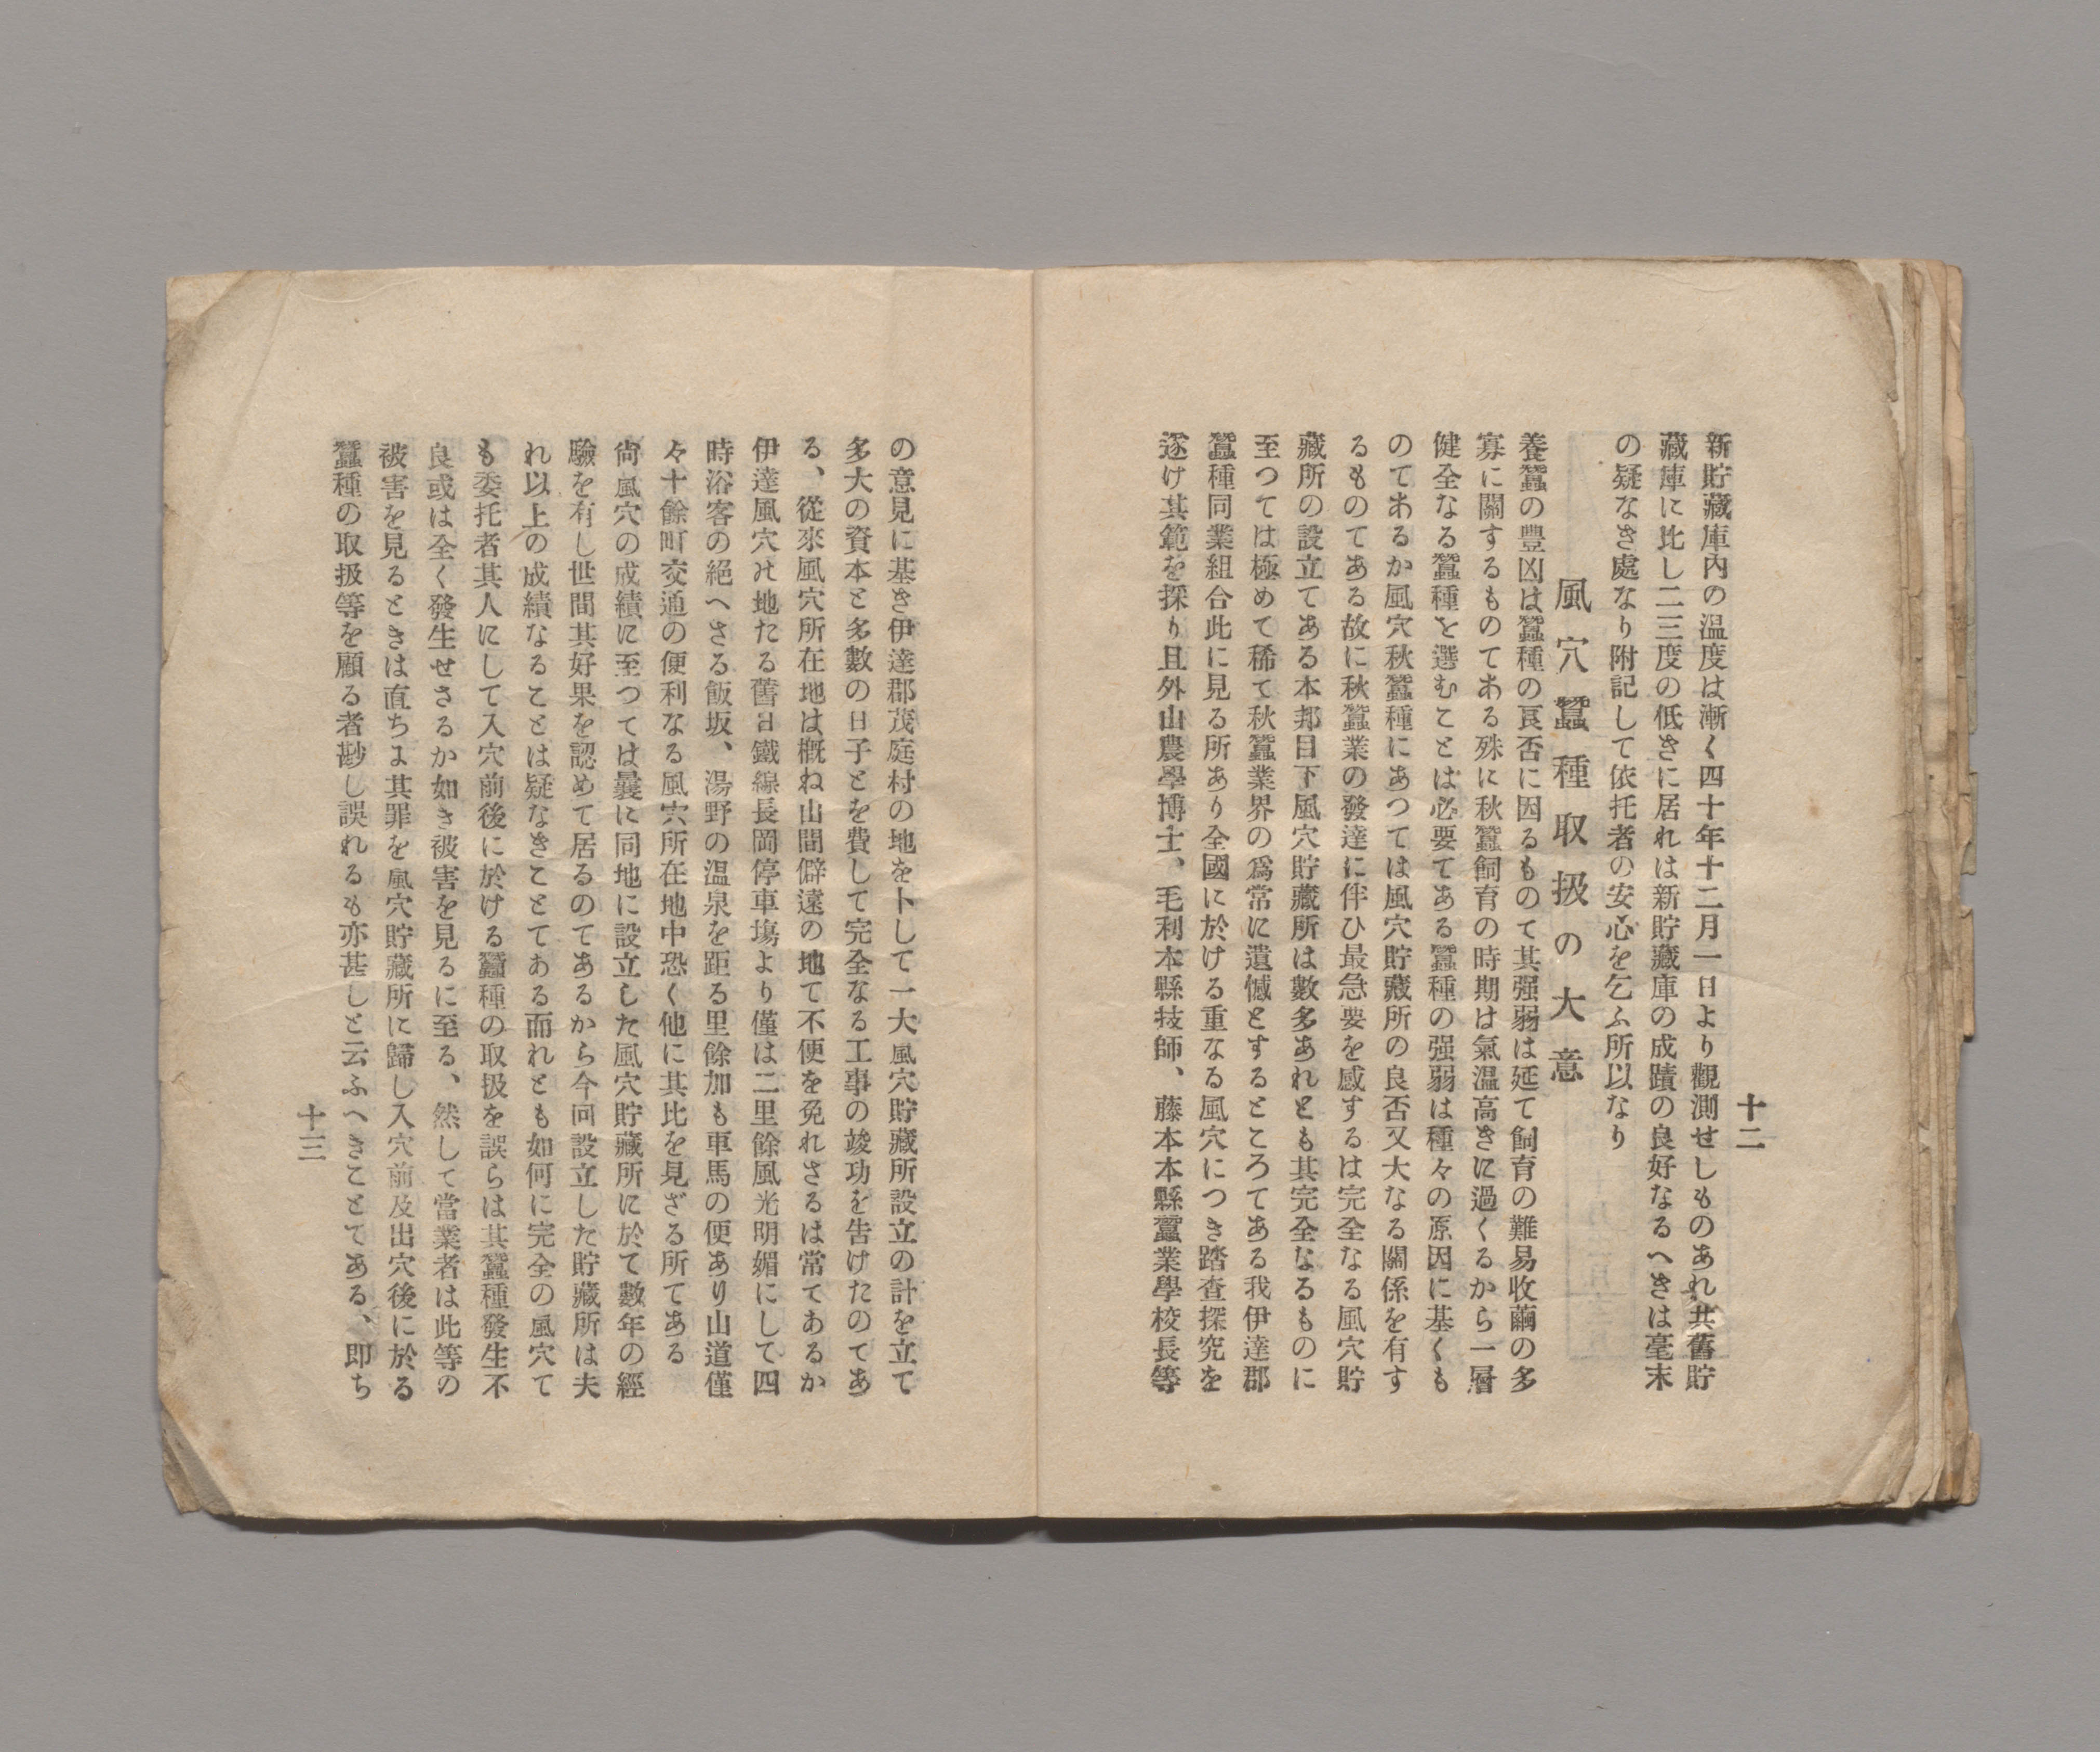 十二
新貯藏庫内の温度は漸く四十年十二月一日より觀測せしものあれ共舊貯
藏庫に比し二三度の低きに居れは新貯藏庫の成蹟の良好なるへきは毫末
の疑なき處なり附記して依托者の安心を乞ふ所以なり
風穴蠶種取扱の大意
養蠶の豐凶は蠶種の良否に因るものて其强弱は延て飼育の難易收繭の多
寡に關するものてある殊に秋蠶飼育の時期は氣温高きに過くるから一層
健全なる蠶種を選むことは必要てある蠶種の强弱は種々の原因に基くも
のてあるか風穴秋蠶種にあつては風穴貯藏所の良否又大なる關係を有す
るものてある故に秋蠶業の發達に伴ひ最急要を感するは完全なる風穴貯
藏所の設立てある本邦目下風穴貯藏所は數多あれとも其完全なるものに
至つては極めて稀て秋蠶業界の爲常に遺憾とするところてある我伊達郡
蠶種同業組合此に見る所あり全國に於ける重なる風穴につき踏査探究を
逐け其範を採り且外山農學博士、毛利本縣技師、藤本本縣蠶業學校長等
の意見に基き伊達郡茂庭村の地を卜して一大風穴貯藏所設立の計を立て
多大の資本と多數の日子とを費して完全なる工事の竣功を告けたのてあ
る、從來風穴所在地は概ね山間僻遠の地て不便を免れさるは常てあるか
伊達風穴の地たる舊日鐵線長岡停車塲より僅は二里餘風光明媚にして四
時浴客の絕へさる飯坂、湯野の温泉を距る里餘加も車馬の便あり山道僅
々十餘町交通の便利なる風穴所在地中恐く他に其比を見ざる所てある
尙風穴の成績に至つては曩に同地に設立した風穴貯藏所に於て數年の經
驗を有し世間其好果を認めて居るのてあるから今回設立した貯藏所は夫
れ以上の成績なることは疑なきことてある而れとも如何に完全の風穴て
も委托者其人にして入穴前後に於ける蠶種の取扱を誤らは其蠶種發生不
良或は全く發生せさるか如き被害を見るに至る、然して當業者は此等の
被害を見るときは直ちに其罪を風穴貯藏所に歸し入穴前及出穴後に於る
蠶種の取扱等を顧る者尠し誤れるも亦甚しと云ふへきことてある、即ち
十三